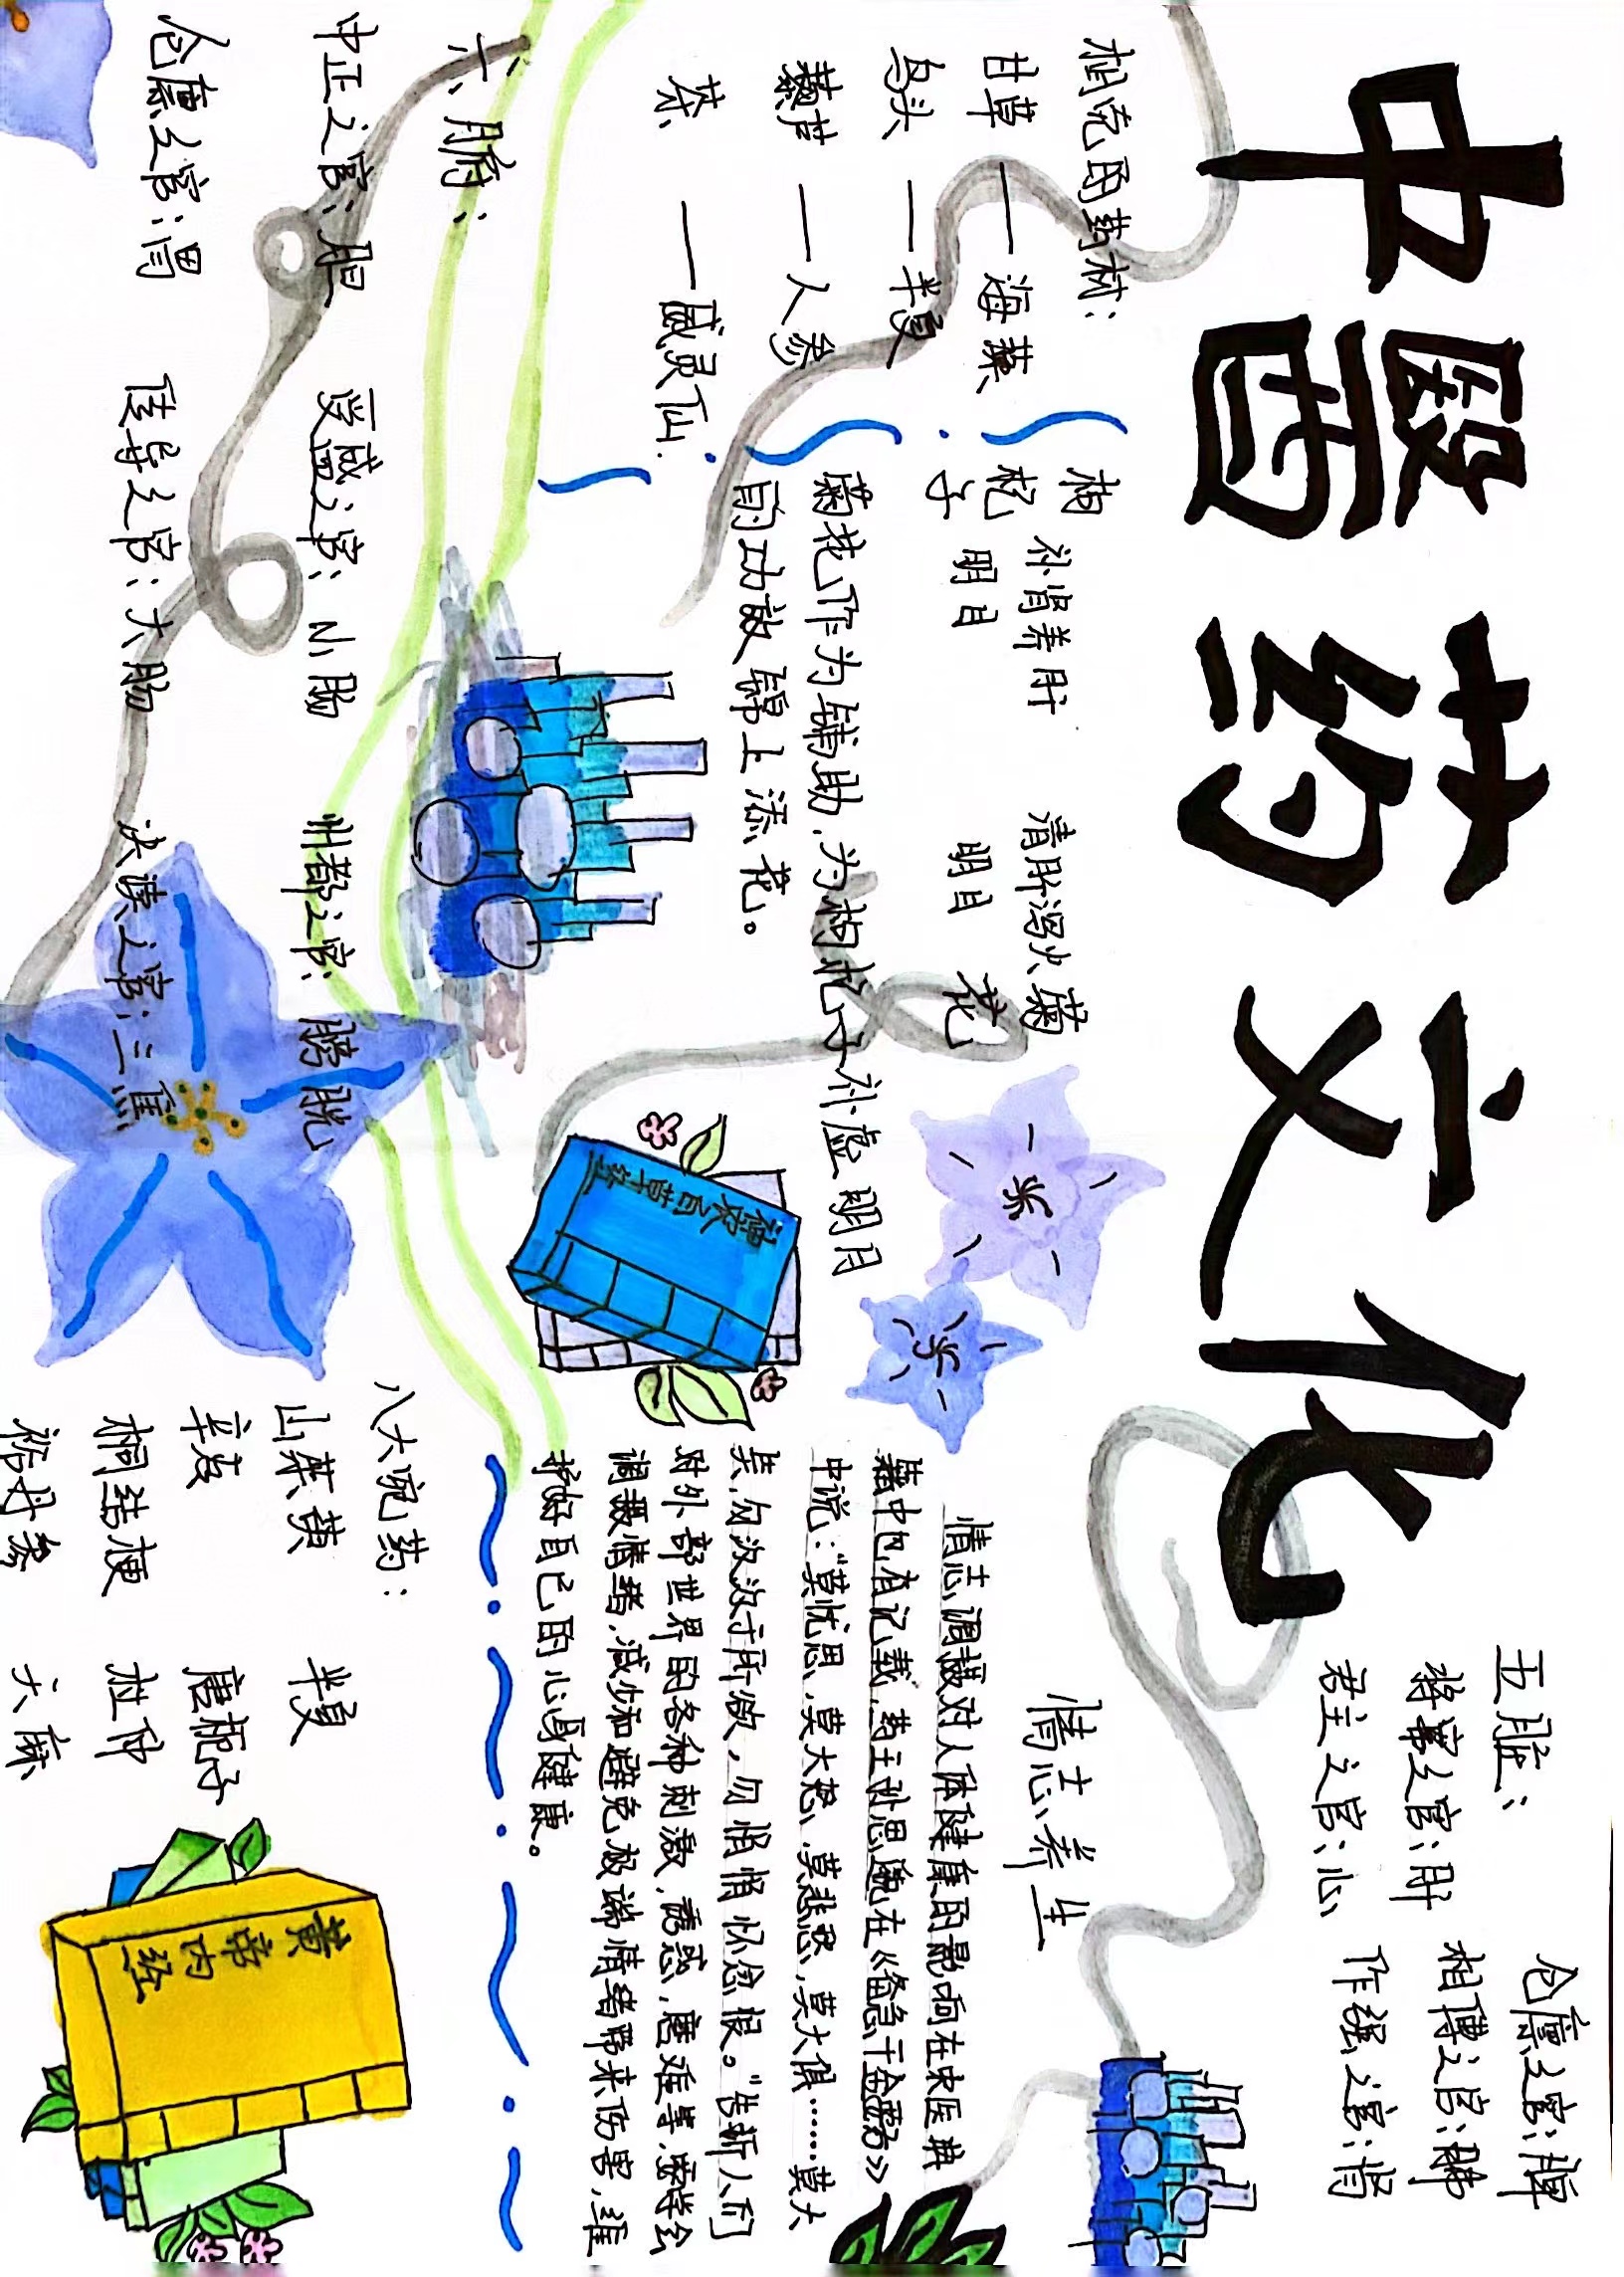 中醫药文化
相克的药材:
甘草 — 海藻
乌头 — 半夏
藜芦 — 人参
茶 — 威灵仙
枸杞子
补肾养肝
明目
清肝泻火
明目
菊花
菊花作为辅助,为枸杞子补虚明月
的功效锦上添花。
六腑:
中正之官:胆
受盛之官:小肠
州都之官:膀胱
仓廪之官:胃
传导之官:大肠
决渎之官:三焦
神农百草经
五脏:
将军之官:肝
君主之官:心
仓廪之官:脾
相傅之官:肺
作强之官:肾
情志养生
情志调摄对人体健康的影响在中医典
籍中也有记载,药王孙思邈在《备急千金要方》
中说:“莫忧思,莫大怒,莫悲愁,莫大惧……莫大
笑,勿汲汲于所欲,勿悄悄怀忿恨。”告诉人们
对外部世界的各种刺激,诱惑,磨难等,要学会
调摄情绪,减少和避免极端情绪带来伤害,维
护好自己的心身健康。
八大宛药:
山茱萸
辛夷
桐桔梗
裕丹参
半夏
唐栀子
杜仲
天麻
黄帝内经